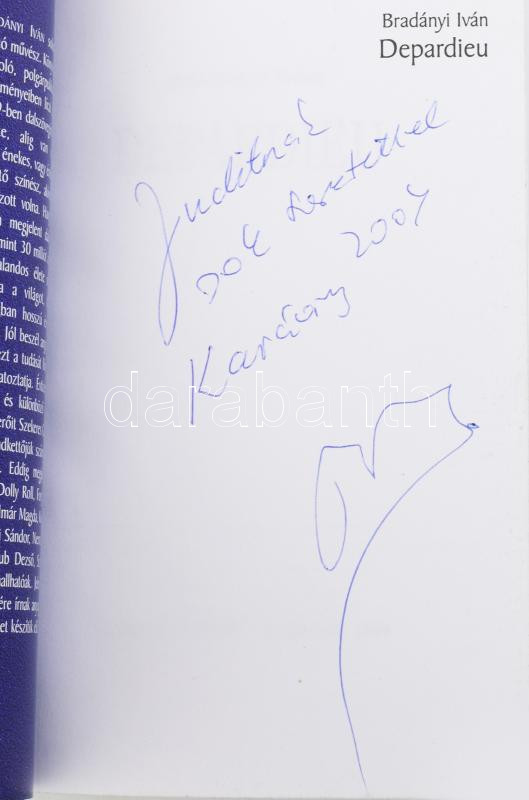 Bradányi Iván
Depardieu
Juditnak
sok szeretettel
Karácsony 2004
darabanth
DÁNYI IVÁN
ó művész.
oló, polgárpu
ményeiben
-ben dalszöveg
te, alig van
énekes, vagy
tő színész,
zott volna.
megjelent
mint 30 milli
alandos élete
a a világot,
gban hosszú
Jól beszél
ezt a tudását
atoztatja.
és különböz
erőit Szekeres
ndkettőjük
. Eddig
Dolly Roll,
lmár Magda,
i Sándor,
ub Dezső,
allhatóak.
ére írnak
et készítjük